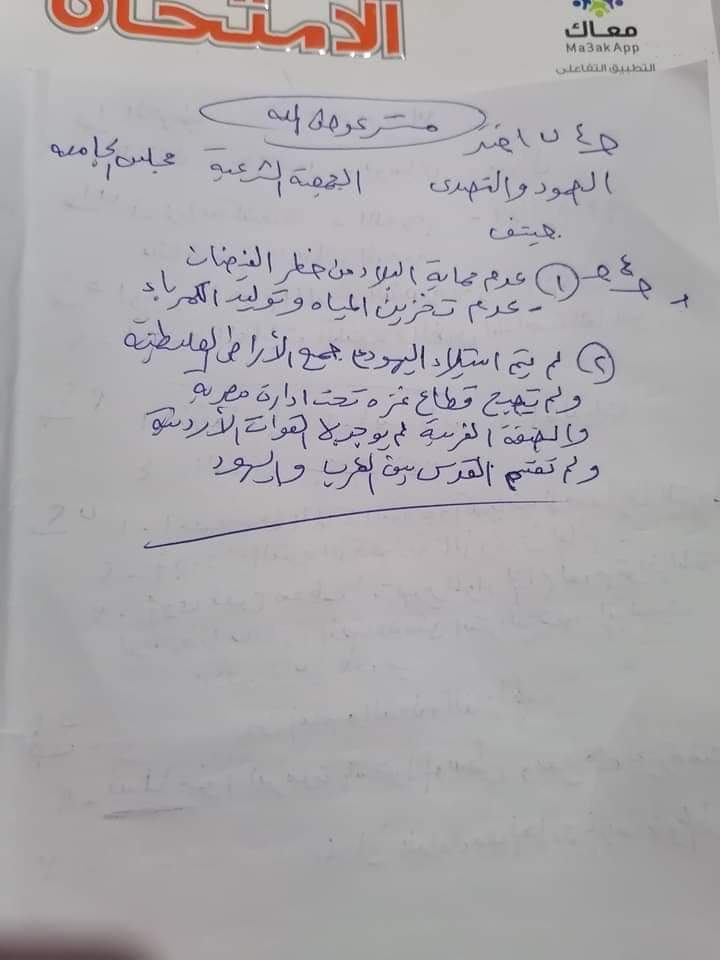 الامتحان
معاك
Ma3akApp
التطبيق التفاعلى
ج٤ ب اختر
الصمود والتصدى الجمعية الشرعية مجلس الجامعه
جنيف
ج٤ ج - ① عدم حماية البلاد من خطر الفيضان
- عدم تخزين المياه وتوليد الكهرباء
② لم يتم استيلاء اليهود جميع الأراضى الفلسطينية
ولم تصبح قطاع غزه تحت ادارة مصرية
والضفة الغربية لم يوجد بالقوات الأردنية
ولم تقسم القدس بين العرب واليهود